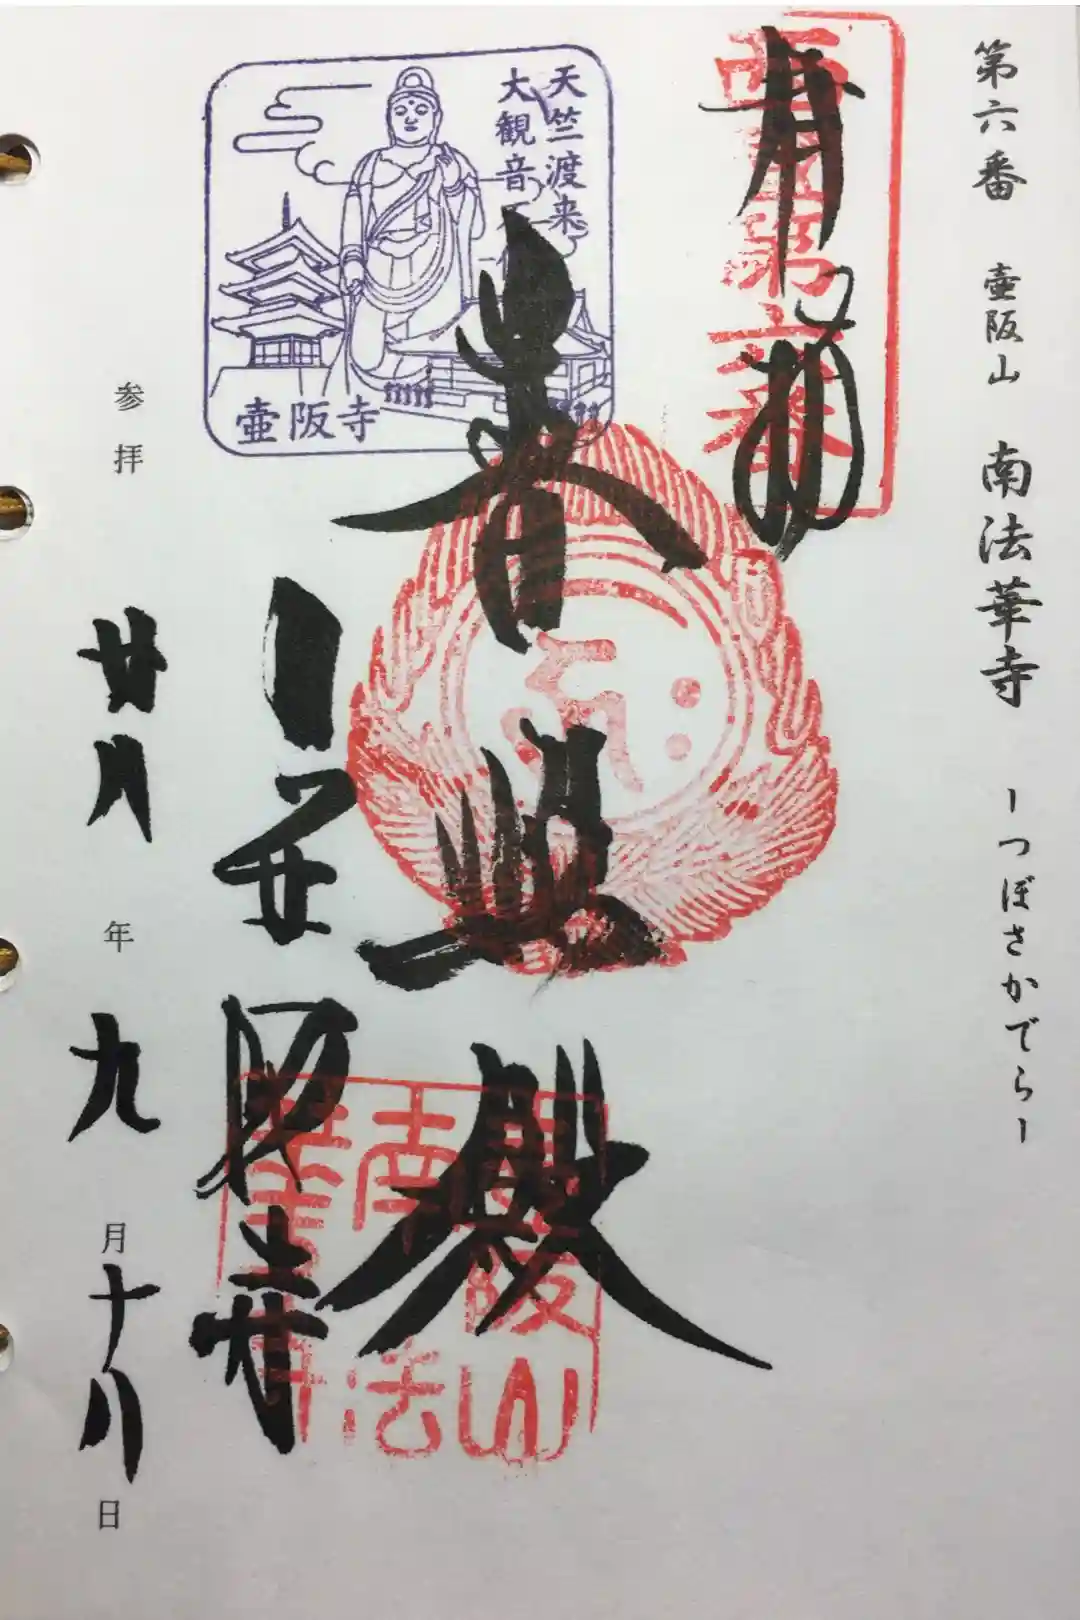 第六番 壺阪山 南法華寺 ーつぼさかでらー
奉拝
西国第六番
天竺渡来
大観音石
壷阪寺
普照殿
壷阪寺
壷阪山
南法
華寺
参拝 廿八年 九月十八日